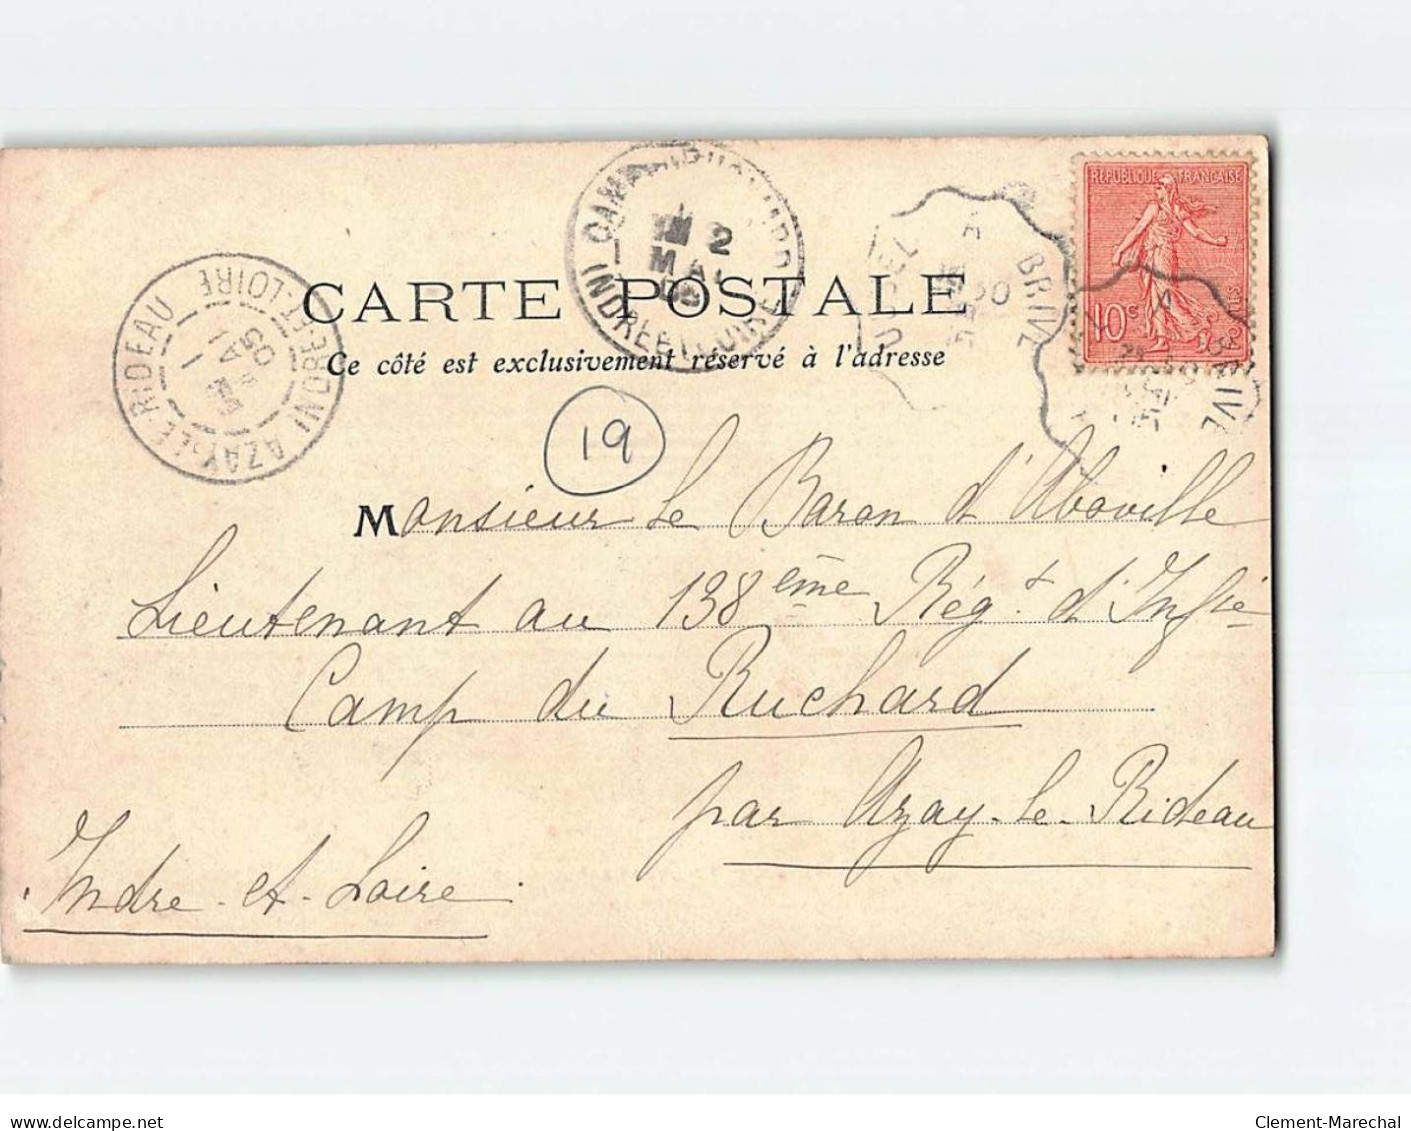 RÉPUBLIQUE FRANÇAISE
10c
USSEL A BRIVE
30
A BRIVE
CAMP DU RUCHARD
INDRE ET LOIRE
2
MAI
05
AZAY-LE-RIDEAU
INDRE-ET-LOIRE
1
MAI
05
CARTE POSTALE
Ce côté est exclusivement réservé à l'adresse
19
Monsieur le Baron d'Aboville
Lieutenant au 138ème Rég.t d'Infie
Camp du Ruchard
par Azay-le-Rideau
Indre-et-Loire.
delcampe.net
Clement-Marechal